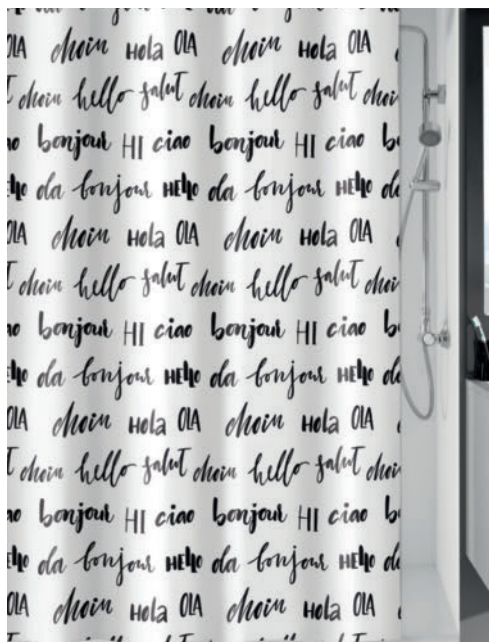 OLA choin Hola OLA choin Hola OLA
choin hello salut choin hello salut choin
bonjour HI ciao bonjour HI ciao
da bonjour HEllo da bonjour HEllo da
OLA choin Hola OLA choin Hola OLA
choin hello salut choin hello salut choin
bonjour HI ciao bonjour HI ciao
da bonjour HEllo da bonjour HEllo da
OLA choin Hola OLA choin Hola OLA
choin hello salut choin hello salut choin
bonjour HI ciao bonjour HI ciao
da bonjour HEllo da bonjour HEllo da
OLA choin Hola OLA choin Hola OLA